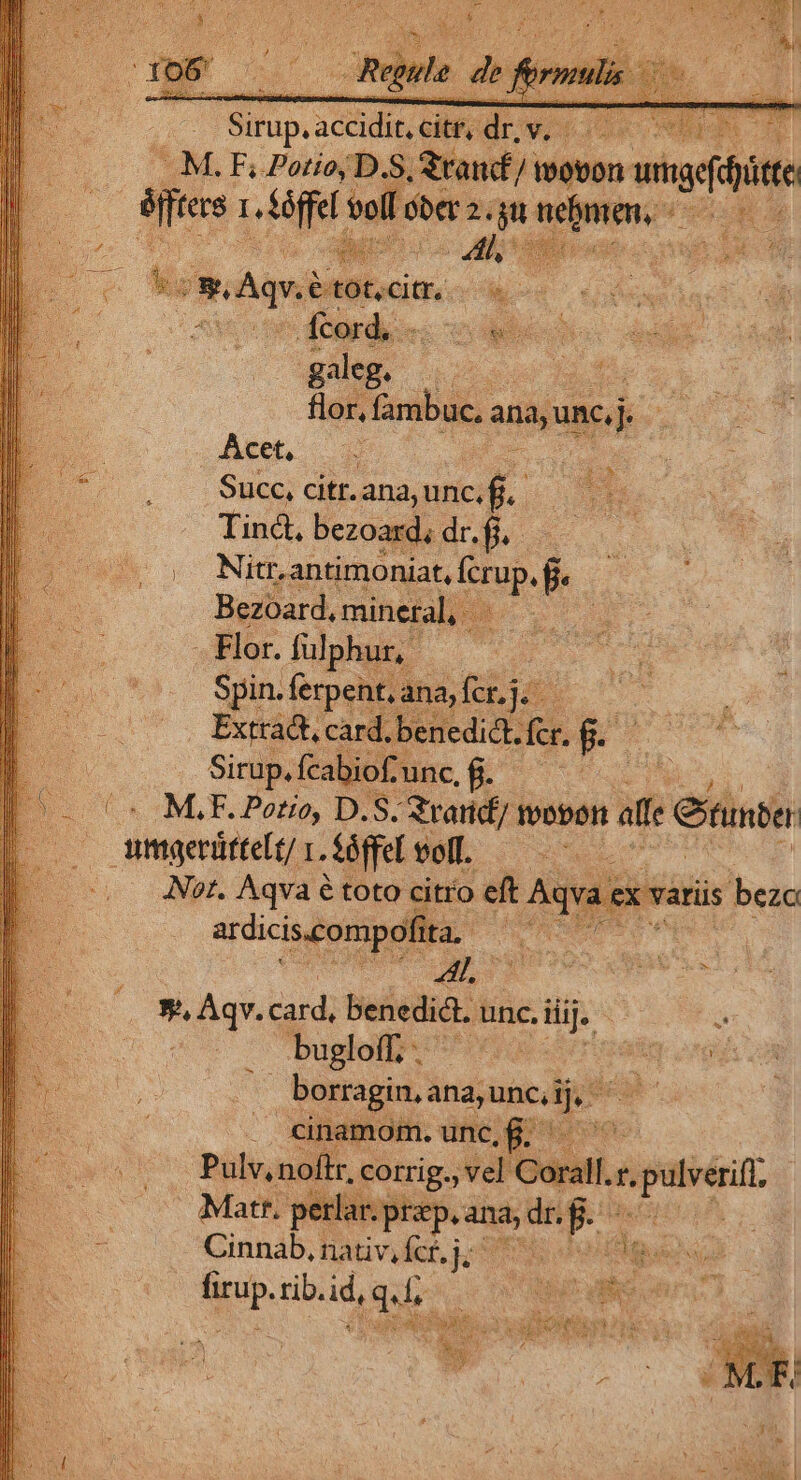 106 Regulæ de formulis
Sirup. accidit. citr. dr. v.
M. F. Potio, D.S. Tranck / wovon umgeschütte
öffters 1. Löffel voll oder 2. zu nehmen.
Al.
℞. Aqv. è tot. citr.
ſcord.
galeg.
flor. ſambuc. ana, unc. j.
Acet.
Succ. citr. ana, unc. ß.
Tinct. bezoard. dr. ß.
Nitr. antimoniat. ſcrup. ß.
Bezoard. mineral.
Flor. ſulphur.
Spin. ſerpent. ana, ſcr. j.
Extract. card. benedict. ſcr. ß.
Sirup. ſcabioſ. unc. ß.
M. F. Potio, D.S. Tranck / wovon alle Stunden
umgerüttelt / 1. Löffel voll.
Not. Aqva è toto citro eſt Aqva ex variis bezo
ardicis compoſita.
Al.
℞. Aqv. card. benedict. unc. iiij.
bugloſſ.
borragin. ana, unc. ij.
cinamom. unc. ß.
Pulv. noſtr. corrig., vel Corall. r. pulveriſſ.
Matr. perlar. præp. ana, dr. ß.
Cinnab. nativ. ſcr. j.
ſirup. rib. id. q. ſ.
M. F.